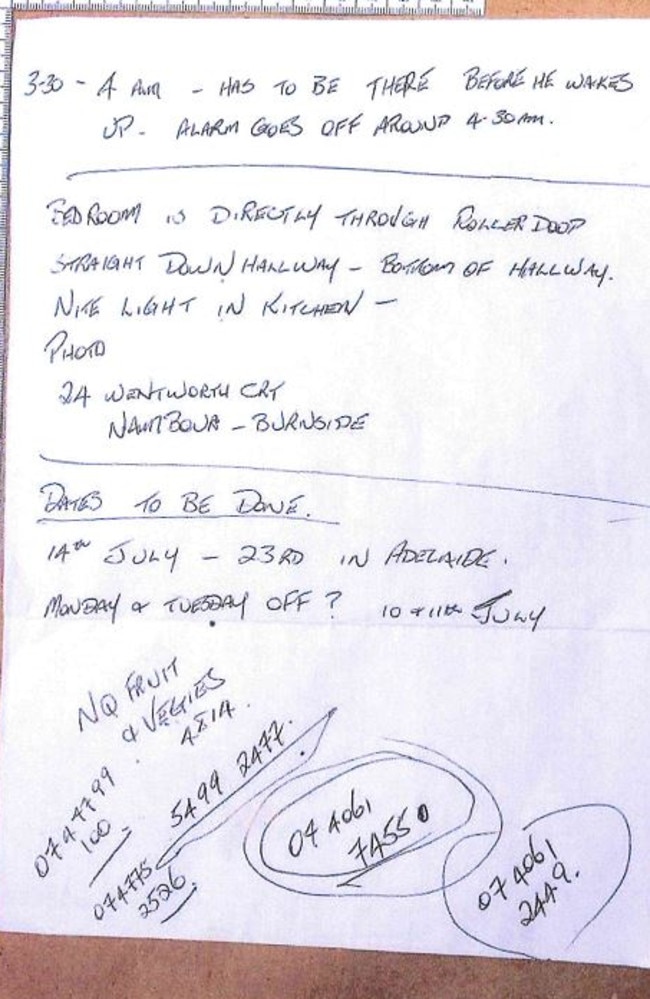 3-30 - 4 AM - HAS TO BE THERE BEFORE HE WAKES
UP. ALARM GOES OFF AROUND 4-30AM.
BEDROOM IS DIRECTLY THROUGH ROLLER DOOR
STRAIGHT DOWN HALLWAY - BOTTOM OF HALLWAY.
NITE LIGHT IN KITCHEN -
PHOTO
24 WENTWORTH CRT
NAMBOUR - BURNSIDE
DATES TO BE DONE.
14TH JULY - 23RD IN ADELAIDE.
MONDAY & TUESDAY OFF? 10 & 11TH JULY
NQ FRUIT
& VEGIES
4814.
0747799
100
5499 2477.
074775
2526.
07 4061
7455
07 4061
2449.